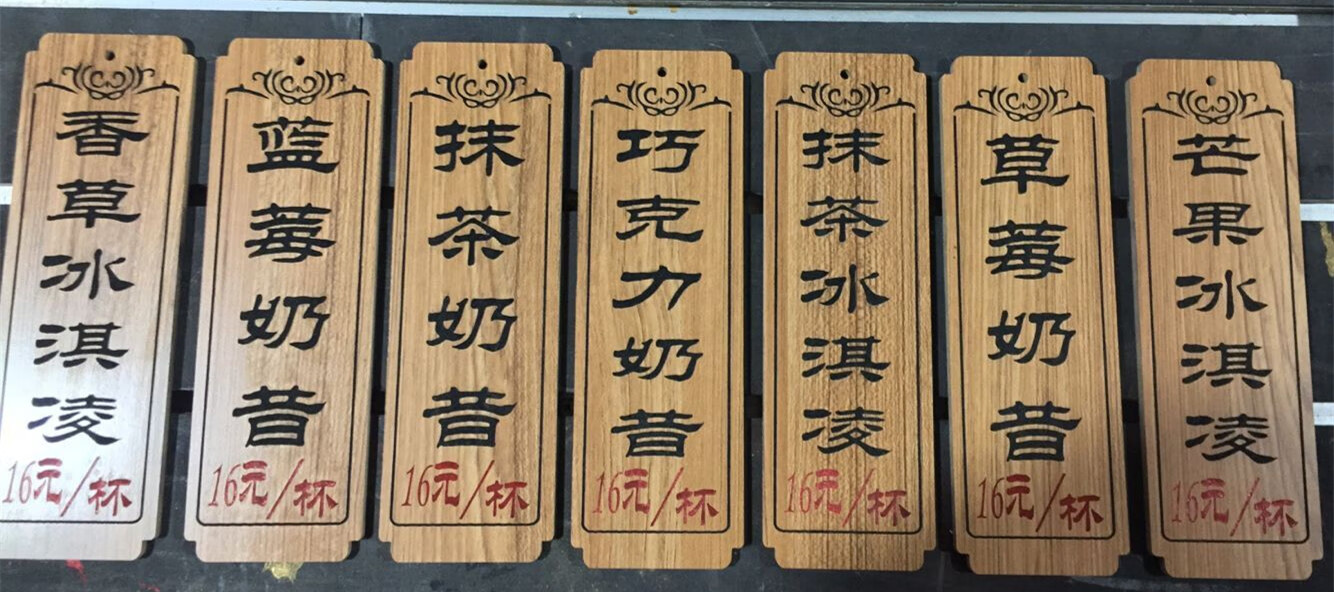 香草冰淇凌
16元/杯
蓝莓奶昔
16元/杯
抹茶奶昔
16元/杯
巧克力奶昔
16元/杯
抹茶冰淇凌
16元/杯
草莓奶昔
16元/杯
芒果冰淇凌
16元/杯